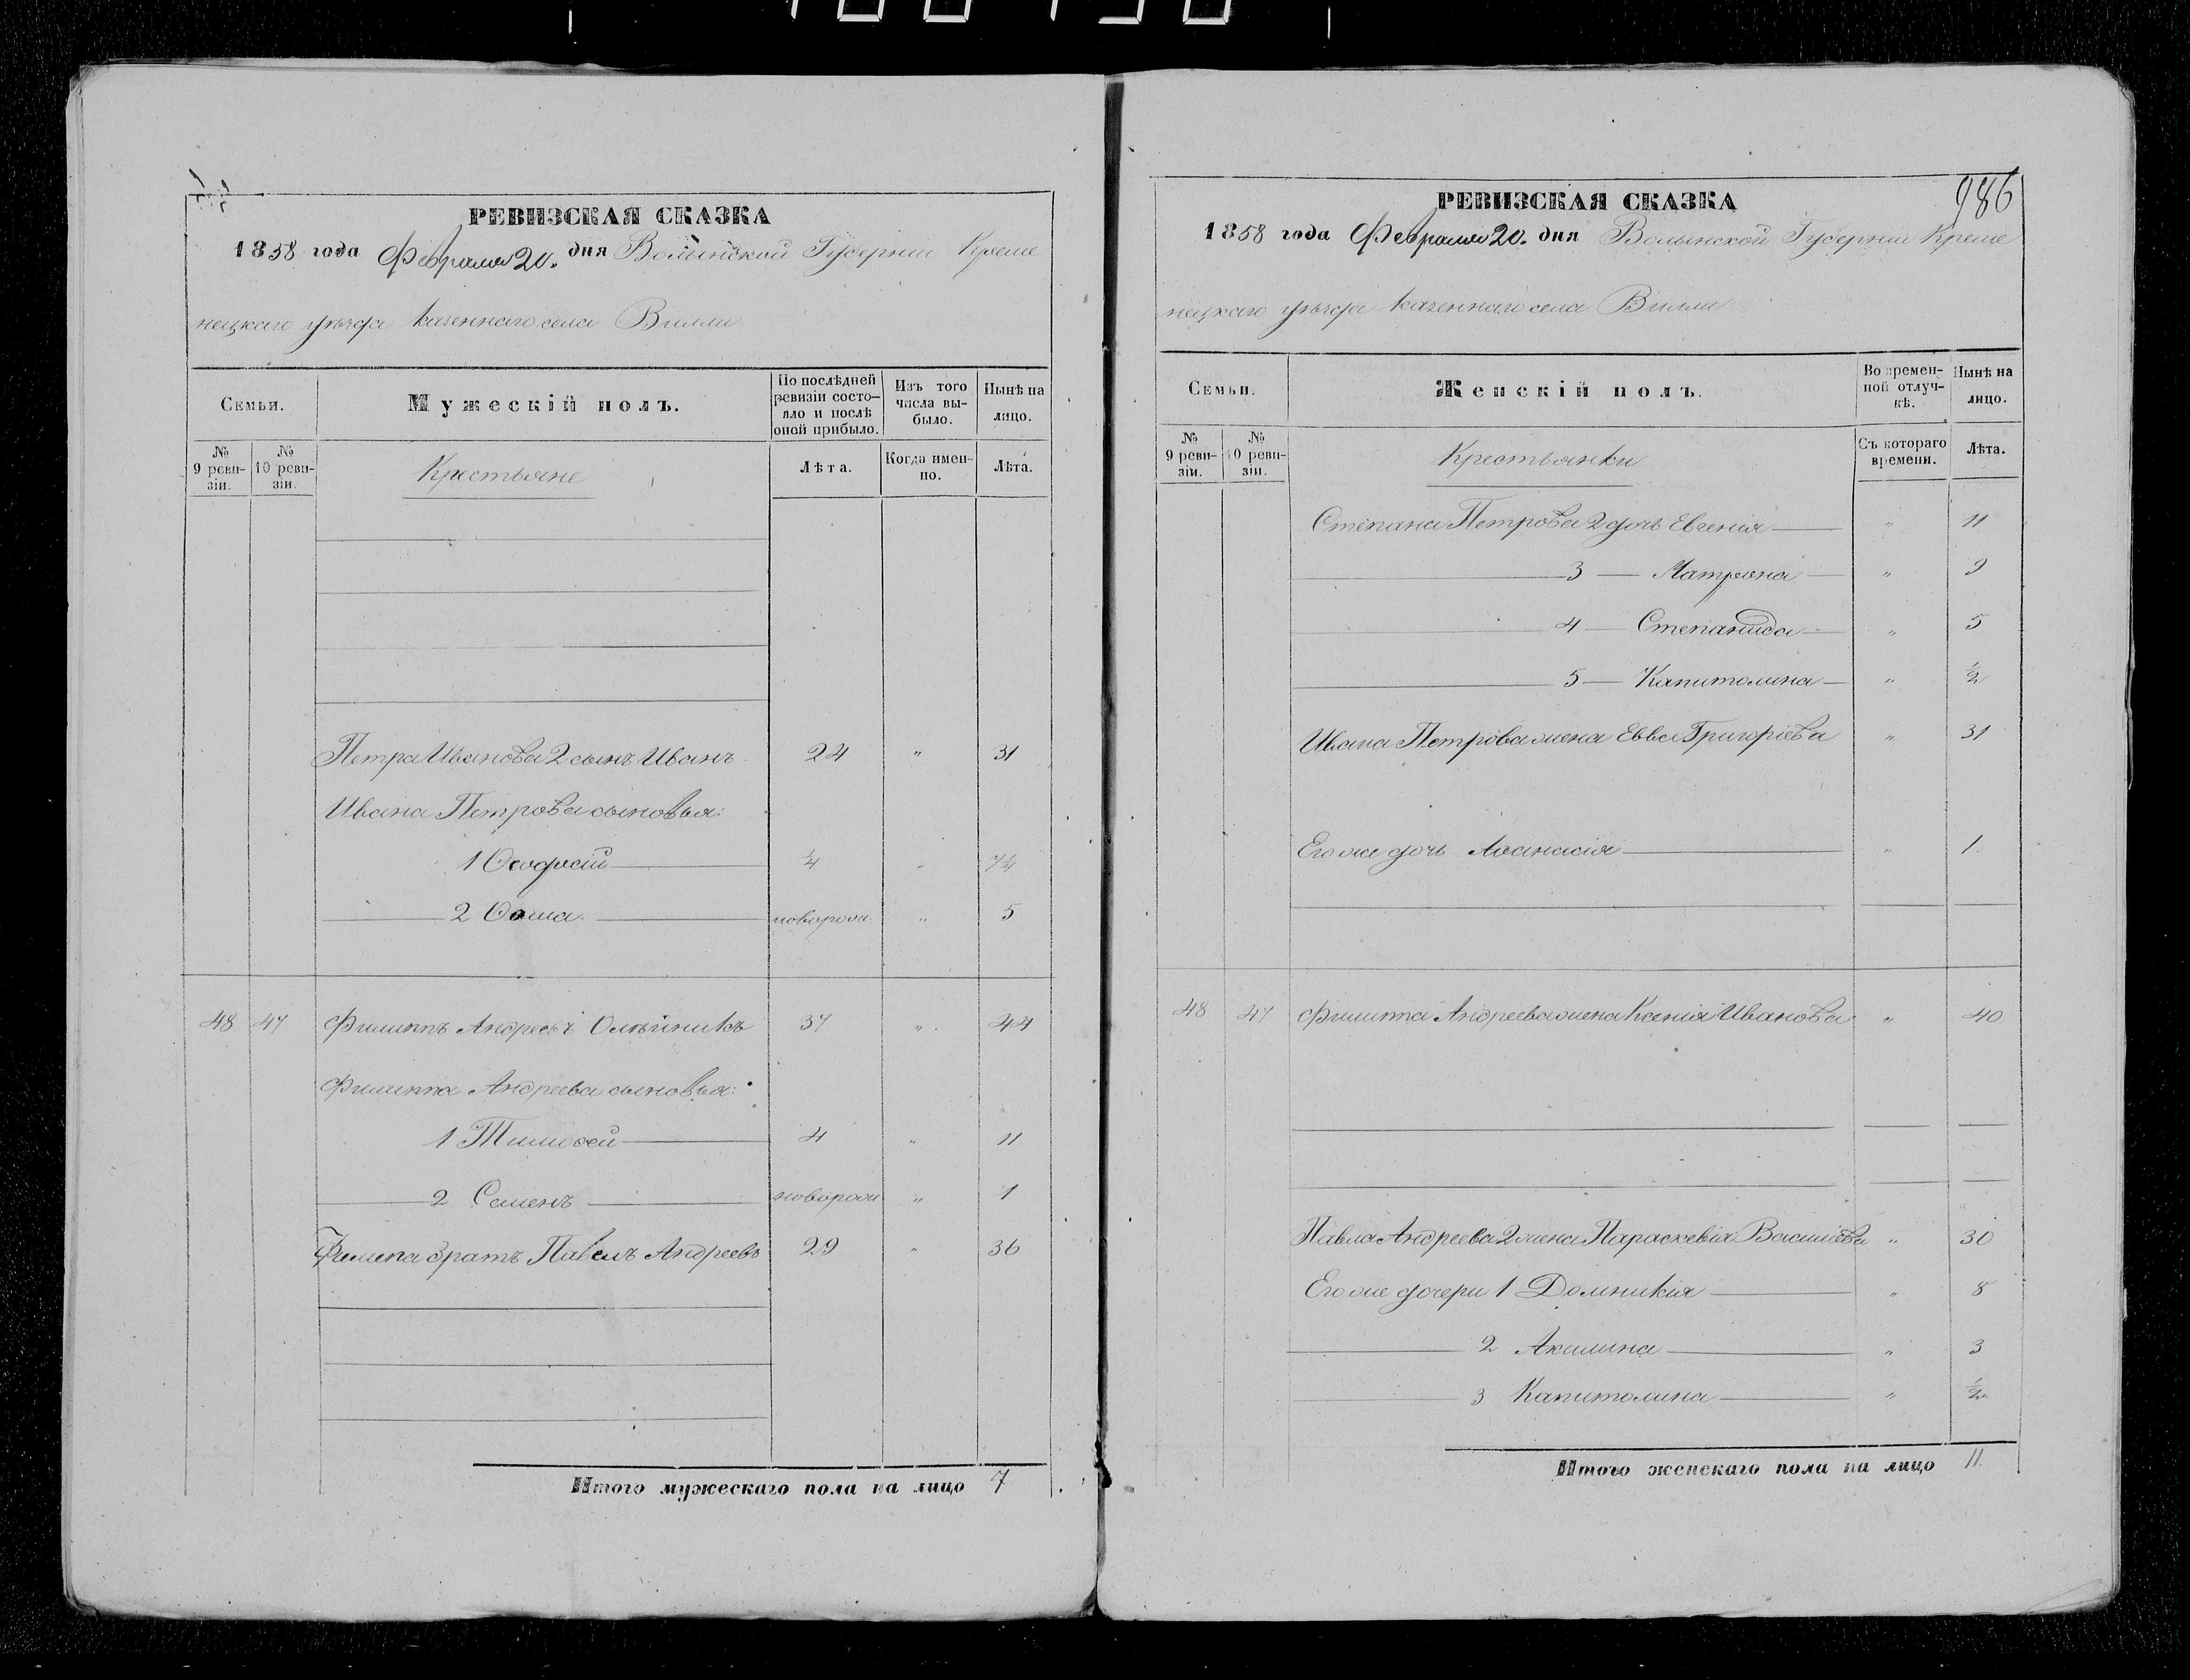 РЕВИЗСКАЯ СКАЗКА
1858 года Февраля 20. дня Волынской Губерніи Креме
нецкаго уѣзда казеннаго села Вилли
Семьи.
Мужескій полъ.
По послѣдней ревизіи состояло и послѣ оной прибыло.
Изъ того числа выбыло.
Нынѣ на лицо.
№ 9 ревизіи.
№ 10 ревизіи.
Крестьяне
Лѣта.
Когда именно.
Лѣта.
Петра Иванова 2 сынъ Иванъ 24 " 31
Ивана Петрова сыновья:
1 Ѳеодосій ¼ " 7¼
2 Ѳома новорож " 5
48 47 Филиппъ Андреевъ Олѣйникъ 37 " 44
Филиппа Андреева сыновья:
1 Тимоѳей 4 " 11
2 Семенъ новорож " 1
Филипа братъ Павелъ Андреевъ 29 " 36
Итого мужескаго пола на лицо 7
986
РЕВИЗСКАЯ СКАЗКА
1858 года Февраля 20. дня Волынской Губерніи Креме
нецкаго уѣзда казеннаго села Вилли
Семьи.
Женскій полъ.
Во временной отлучкѣ.
Нынѣ на лицо.
№ 9 ревизіи.
№ 10 ревизіи.
Крестьянки
Съ котораго времени.
Лѣта.
Степана Петрова 2 дочь Евгенія " 11
3 — Матрона " 9
4 — Степанида " 5
5 — Капитолина " ½
Ивана Петрова жена Евва Григоріева " 31
Его же дочь Аѳанасія " 1
48 47 Филиппа Андреева жена Ксенія Иванова " 40
Павла Андреева 2 жена Параскевія Василіева " 30
Его же дочери 1 Домникія " 8
2 Акилина " 3
3 Капитолина " ½
Итого женскаго пола на лицо 11